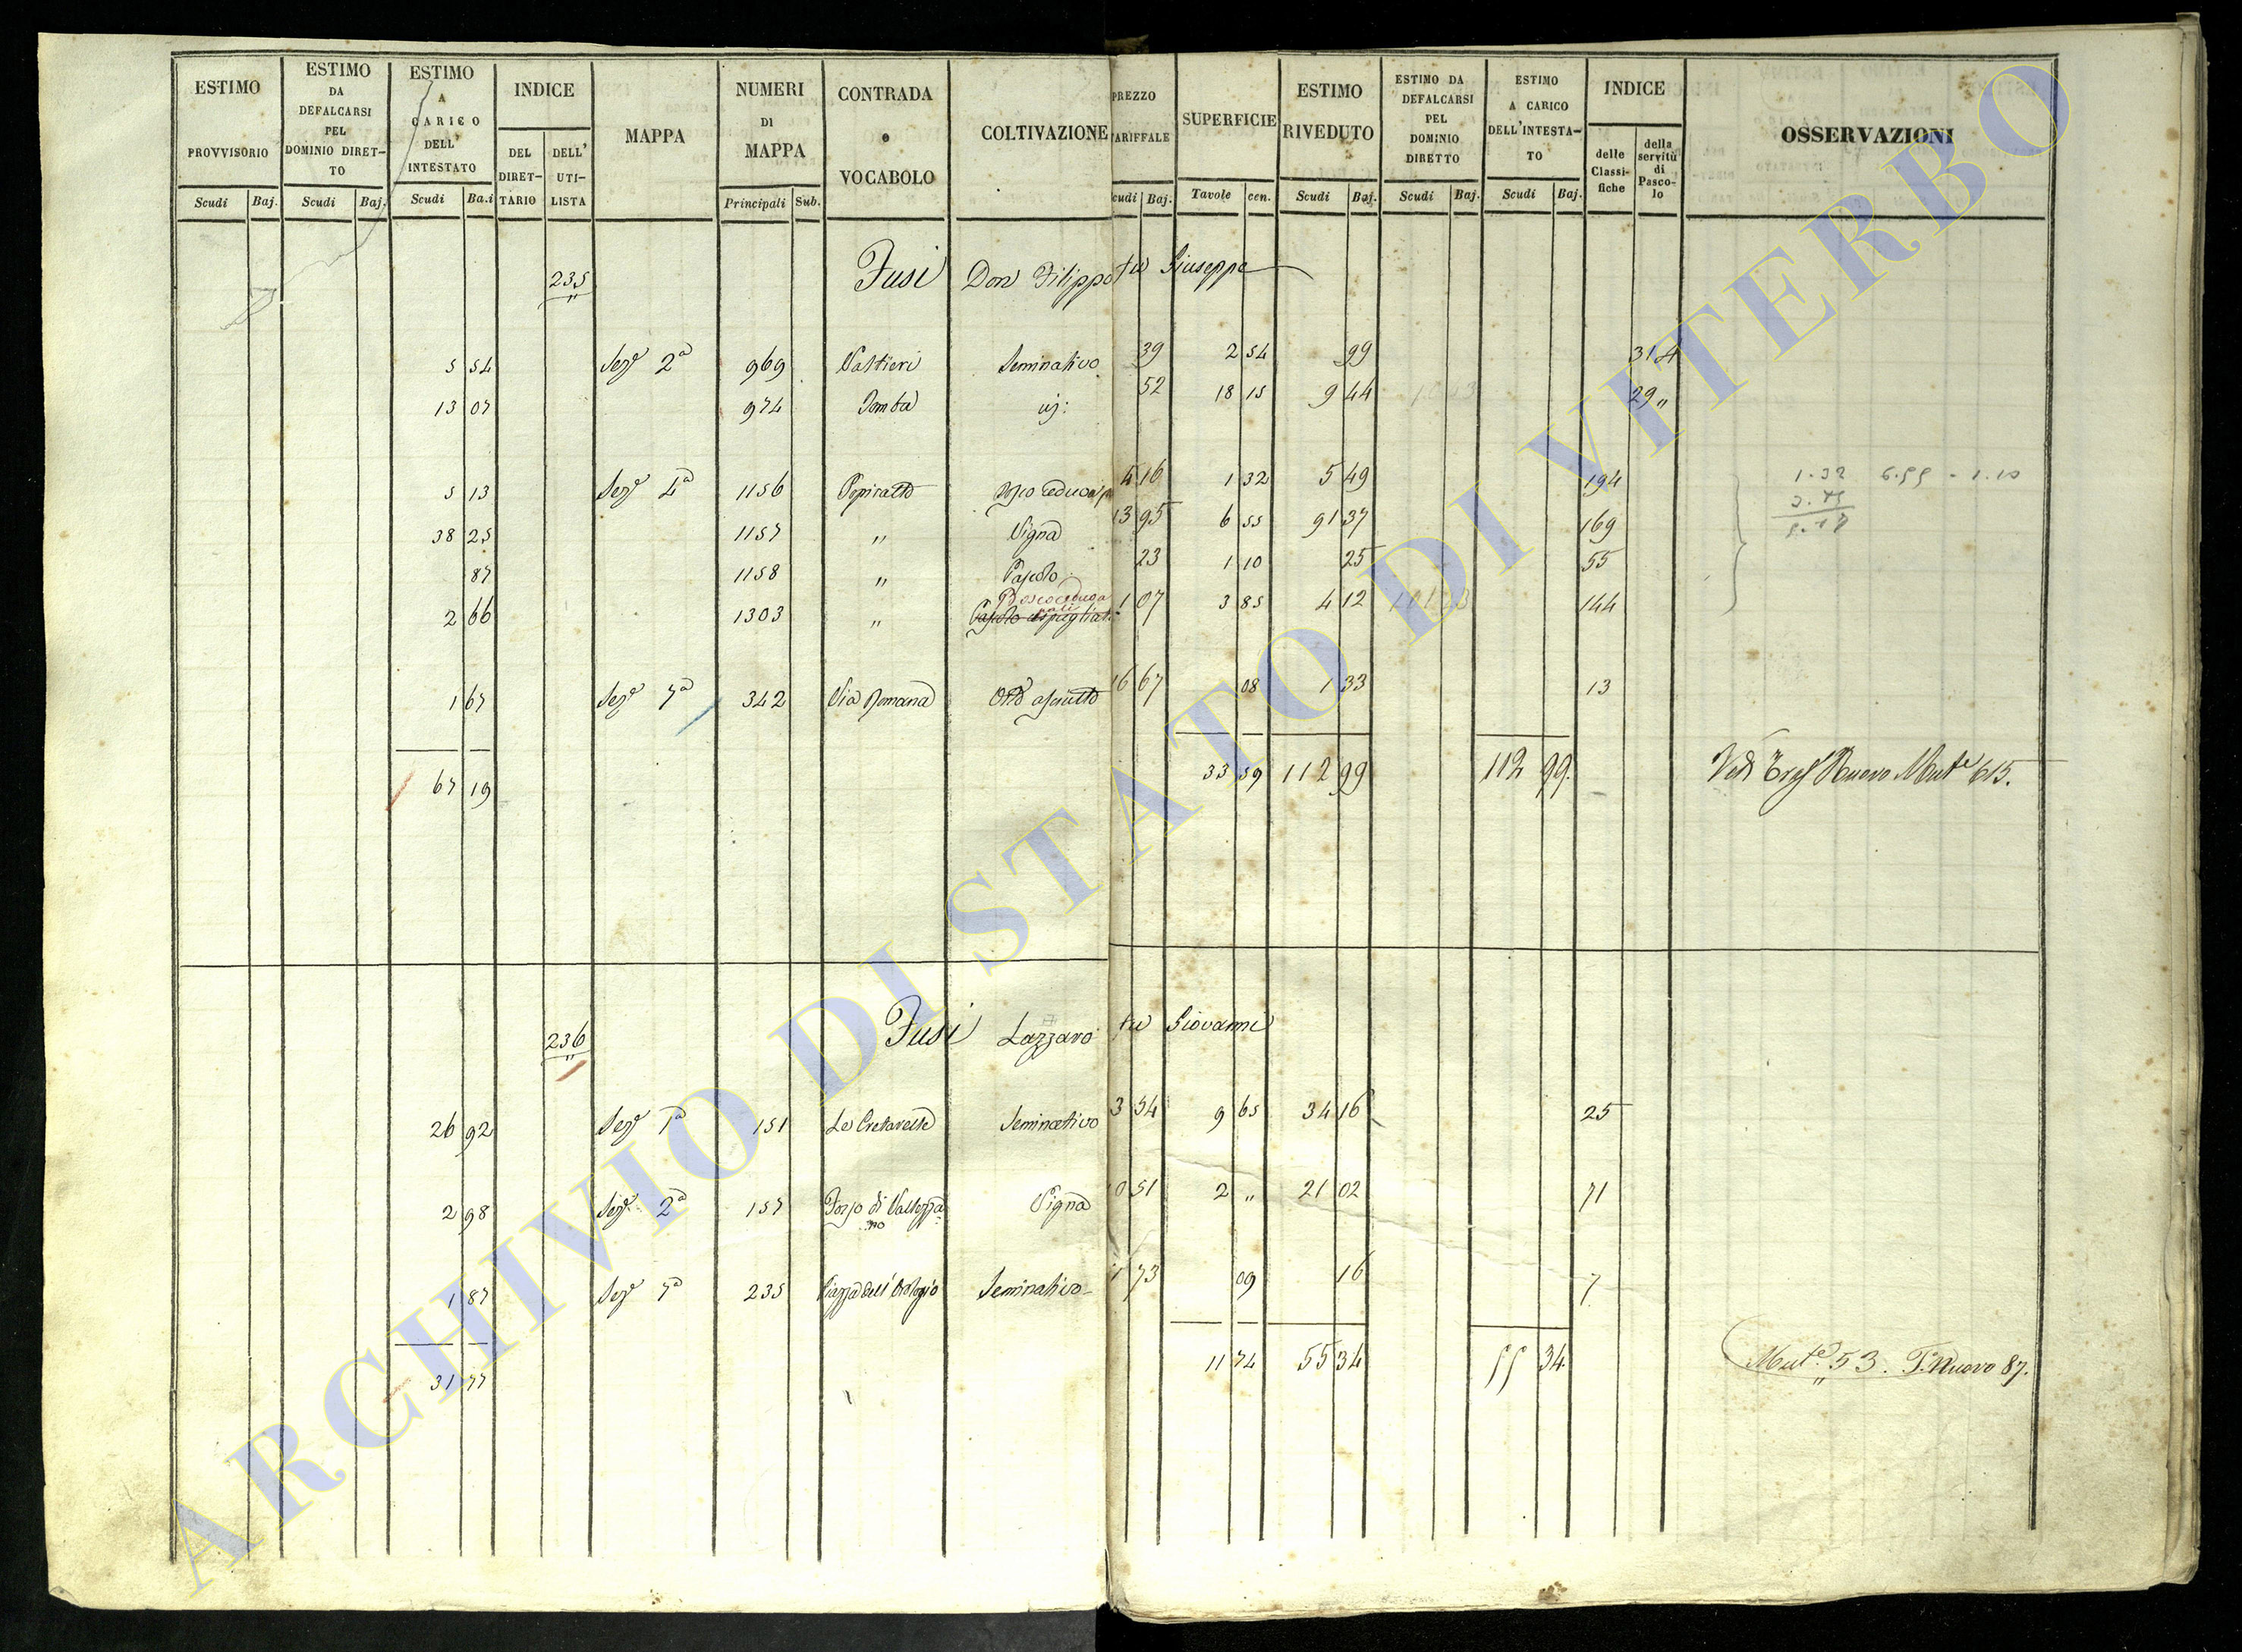 ESTIMO PROVVISORIO
ESTIMO DA DEFALCARSI PEL DOMINIO DIRET-TO
ESTIMO A CARICO DELL' INTESTATO
INDICE
DEL DIRET-TARIO
DELL' UTI-LISTA
MAPPA
NUMERI DI MAPPA
CONTRADA o VOCABOLO
COLTIVAZIONE
PREZZO TARIFFALE
SUPERFICIE
ESTIMO RIVEDUTO
ESTIMO DA DEFALCARSI PEL DOMINIO DIRETTO
ESTIMO A CARICO DELL'INTESTA-TO
INDICE
delle Classi-fiche
della servitù di Pasco-lo
OSSERVAZIONI
Scudi Baj. Scudi Baj. Scudi Ba.i Principali Sub. cudi Baj. Tavole cen. Scudi Baj. Scudi Baj. Scudi Baj.
235 Fusi Don Filippo fu Giuseppe
5 54 Sez.e 2a 969 Valtieri Seminativo 39 2 54 99 314
13 07 974 Tomba 52 18 15 9 44 29 "
5 13 Sez.e 4a 1156 Popiratto 4 16 1 32 5 49 194
38 25 1157 " Vigna 13 95 6 55 91 37 169
87 1158 " Pascolo 23 1 10 25 55
Bosco ceduo
2 66 1303 " 1 07 3 85 4 12 144
1 67 Sez.e 7a 342 Via Romana Orto asciutto 16 67 08 1 33 13
67 19 33 59 112 99 112 99 Nuovo Mut.e 615.
236 Fusi Lazzaro fu Giovanni
26 92 Sez.e 1a 151 Seminativo 3 54 9 65 34 16 25
2 98 Sez.e 2a 157 Fosso di Vallezza-no Vigna 10 51 2 " 21 02 71
1 87 Sez.e 7a 235 Piazza dell'Orologio Seminativo 1 73 09 16 7
31 77 11 74 55 34 55 34 Mut.e 53. T. Nuovo 87.
ARCHIVIO DI STATO DI VITERBO